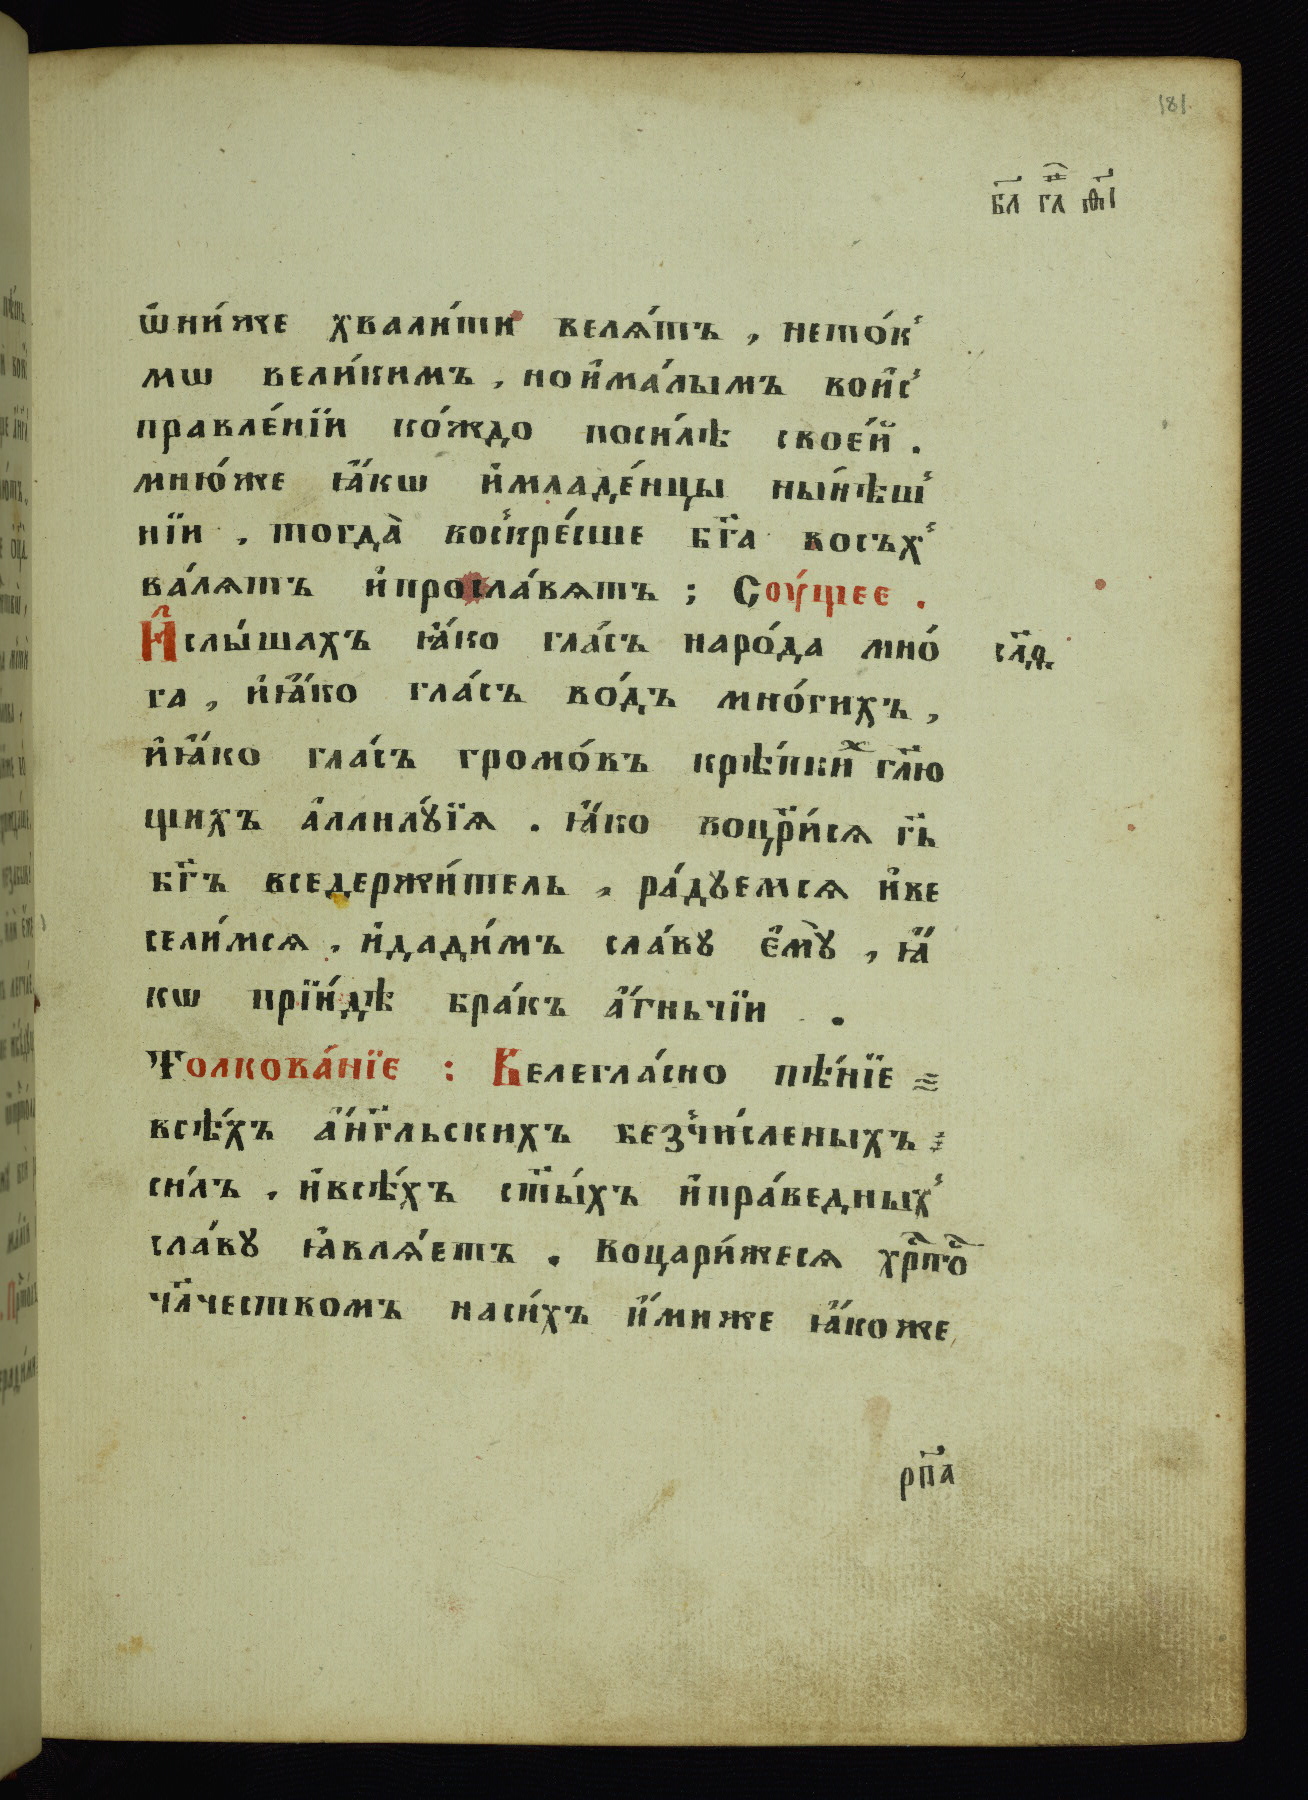 181
сл҃ гл҃ ѳ҃і
ѿни́мже хвали́ти велѧ́тъ, нето́к̾
мѡ вели́кимъ, нои҆ма́лымъ вои҆с̾
правле́нїи ко́ждо поси́лѣ свое́й .
мню́же ꙗ҆́кѡ и҆младе́нцы ны́нѣш̾
нїи , тогда̀ вос̾кре́сше бг҃а восъх̾
ва́лѧтъ и҆просла́вѧтъ ; Соу́щее .
И҆слы́шахъ ꙗ҆́ко гла́съ наро́да мно́
га , и҆ꙗ҆́ко гла́съ во́дъ мно́гихъ ,
и҆ꙗ҆́ко гла́съ громо́въ крѣ́пкиⷯ гл҃ю
щихъ а҆ллилꙋ́їѧ . ꙗ҆́ко воцр҃и́сѧ гь҃
бг҃ъ вседержи́тель , ра́дꙋемсѧ и҆ве
сели́мсѧ , и҆дади́мъ сла́вꙋ є҆мꙋ̀ , ꙗ҆́
кѡ прїи́дѣ бра́къ а҆́гньчїи .
Толкова́нїе : Велегла́сно пѣ́нїе
всѣ́хъ а҆́нг҃льскихъ без̾чи́сленыхъ
си́лъ , и҆всѣ́хъ ст҃ы́хъ и҆пра́ведных̾
сла́вꙋ ꙗ҆влѧ́етъ . воцари́жесѧ хрⷭ҇тоⷭ҇
чл҃чествомъ наси́хъ и҆́миже ꙗ҆́коже
рп҃а